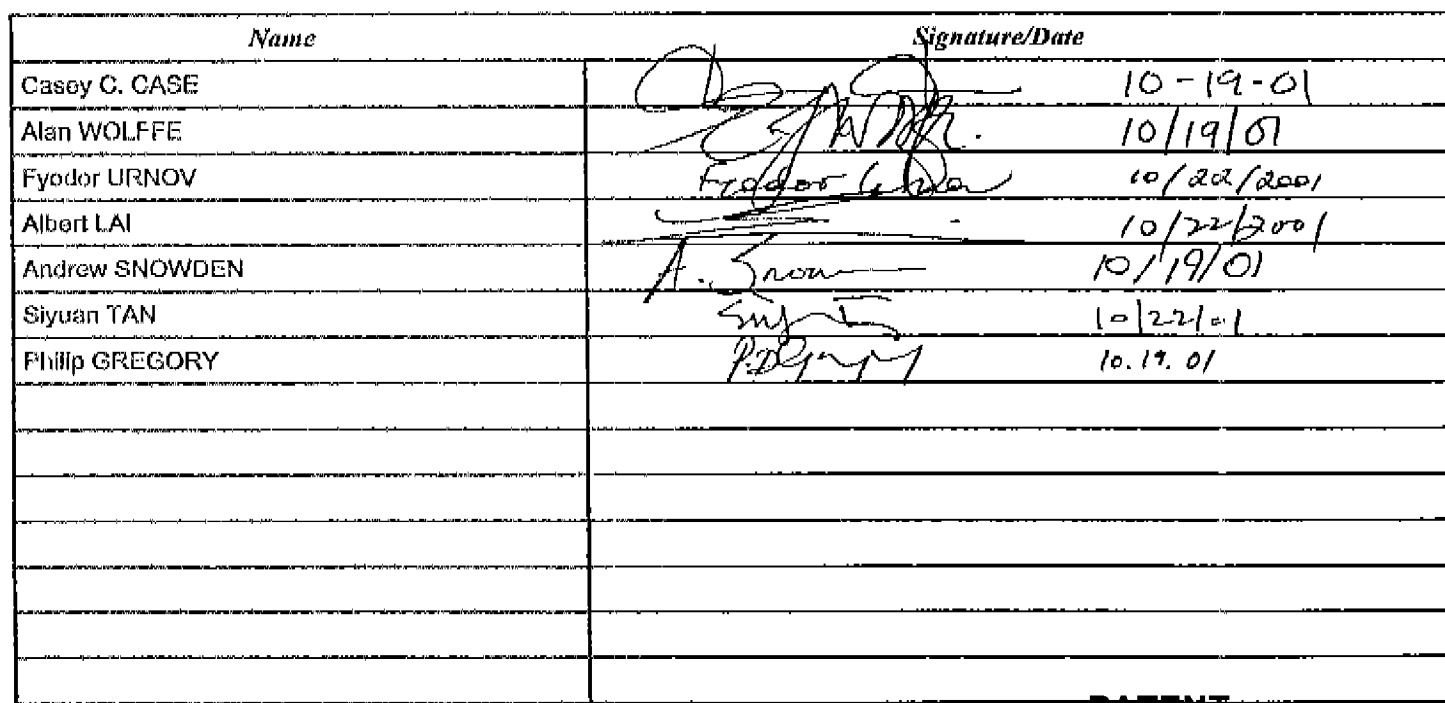 Name Signature/Date
Casey C. CASE 10-19-01
Alan WOLFFE 10/19/01
Fyodor URNOV Fyodor Urnov 10/22/2001
Albert LAI 10/22/2001
Andrew SNOWDEN A. Snow 10/19/01
Siyuan TAN 10/22/01
Philip GREGORY P.D Gregory 10.19.01
PATENT